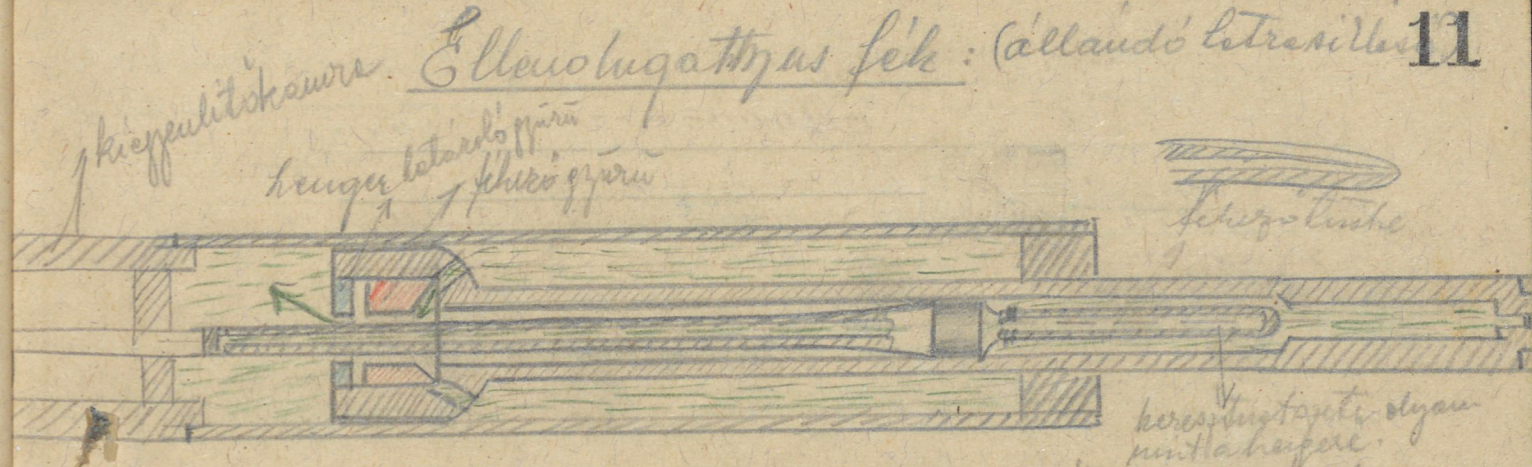 Ellendugattyus fék: (állandó hátrasiklás)
11
kiegyenlítőkamra
henger határoló gyűrű
fékező gyűrű
fékezőtüske
keresztmetszete olyan
mint a hengeré.